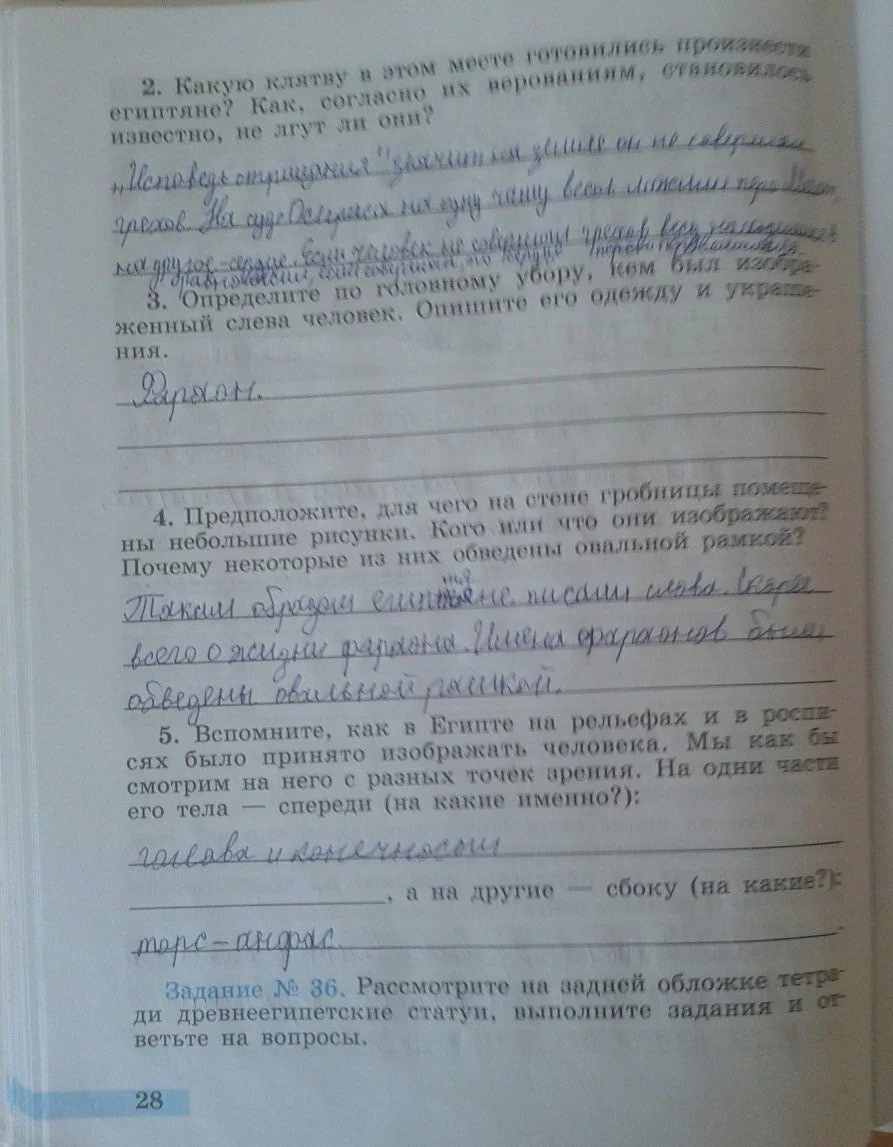 2. Какую клятву в этом месте готовились произнести
египтяне? Как, согласно их верованиям, становилось
известно, не лгут ли они?
„Исповедь отрицания" значит на земле он не совершал
грехов. На суде Осириса на одну чашу весов ложили перо Маат,
на другое-сердце. Если человек не совершил грехов весы находились
3. Определите по головному убору, кем был изобра-
женный слева человек. Опишите его одежду и украше-
ния.
Фараон.
4. Предположите, для чего на стене гробницы помеще-
ны небольшие рисунки. Кого или что они изображают?
Почему некоторые из них обведены овальной рамкой?
Таким образом египтяне писали слова. Скорее
всего о жизни фараона. Имена фараонов были
обведены овальной рамкой.
5. Вспомните, как в Египте на рельефах и в роспи-
сях было принято изображать человека. Мы как бы
смотрим на него с разных точек зрения. На одни части
его тела — спереди (на какие именно?):
голова и конечности
, а на другие — сбоку (на какие?):
торс-анфас
Задание № 36. Рассмотрите на задней обложке тетра-
ди древнеегипетские статуи, выполните задания и от-
ветьте на вопросы.
28